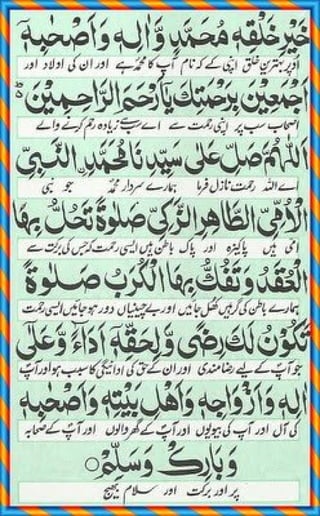 خَيْرِ خَلْقِهٖ مُحَمَّدٍ وَّاٰلِهٖ وَاَصْحَابِهٖٓ
اوپر بہترین خلق اپنی کے کہ نام آپ کا محمدؐ ہے اور ان کی اولاد اور
اَجْمَعِيْنَ بِرَحْمَتِكَ يَآاَرْحَمَ الرَّاحِمِيْنَ ۞
اصحاب سب پر اپنی رحمت سے اے سب سے زیادہ رحم کرنے والے
اَللّٰهُمَّ صَلِّ عَلٰى سَيِّدِنَا مُحَمَّدِ نِ النَّبِيِّ
اے اللہ رحمت نازل فرما ہمارے سردار محمدؐ جو نبی
الْاُمِّيِّ الطَّاهِرِ الزَّكِيِّ صَلٰوةً تَحُلُّ بِهَا
امی ہیں پاکیزہ اور پاک باطن ہیں ایسی رحمت کہ جس کی برکت سے
الْعُقَدُ وَتَفُكُّ بِهَا الْكُرَبُ صَلٰوةً
ہمارے باطن کی گرہیں کھل جائیں اور بے چینیاں دور ہو جائیں ایسی رحمت
تَكُوْنُ لَكَ رِضًى وَّلِحَقِّهٖٓ اَدَآءً وَّعَلٰٓى
جو آپ کے لیے رضامندی اور ان کے حق کی ادائیگی کا سبب ہو اور آپؐ
اٰلِهٖ وَاَزْوَاجِهٖ وَاَهْلِ بَيْتِهٖ وَاَصْحَابِهٖ
کی آل اور آپ کی بیویوں اور آپؐ کے گھر والوں اور آپؐ کے صحابہ
وَبَارِكْ وَسَلِّمْ ○
پر اور برکت اور سلام بھیج